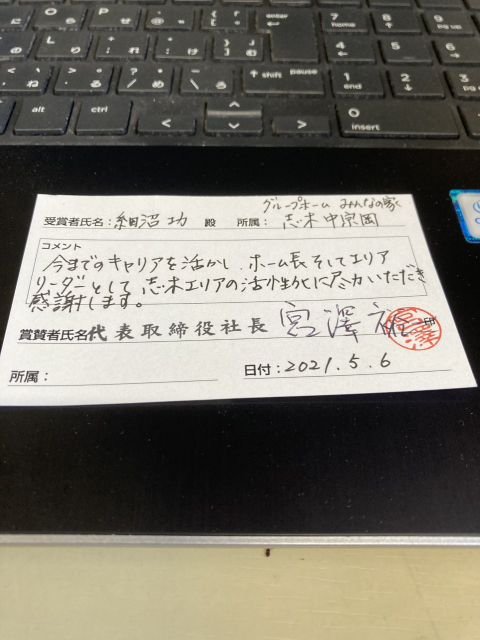 alt
ctrl
shift
pause
enter
home
insert
end
グループホーム みんなの家
受賞者氏名：細沼 功 殿 所属：志木中宗岡
コメント
今までのキャリアを活かし、ホーム長そしてエリア
リーダーとして、志木エリアの活性化に尽力いただき
感謝します。
賞賛者氏名 代表取締役社長 宮澤 印
所属：
日付：2021.5.6